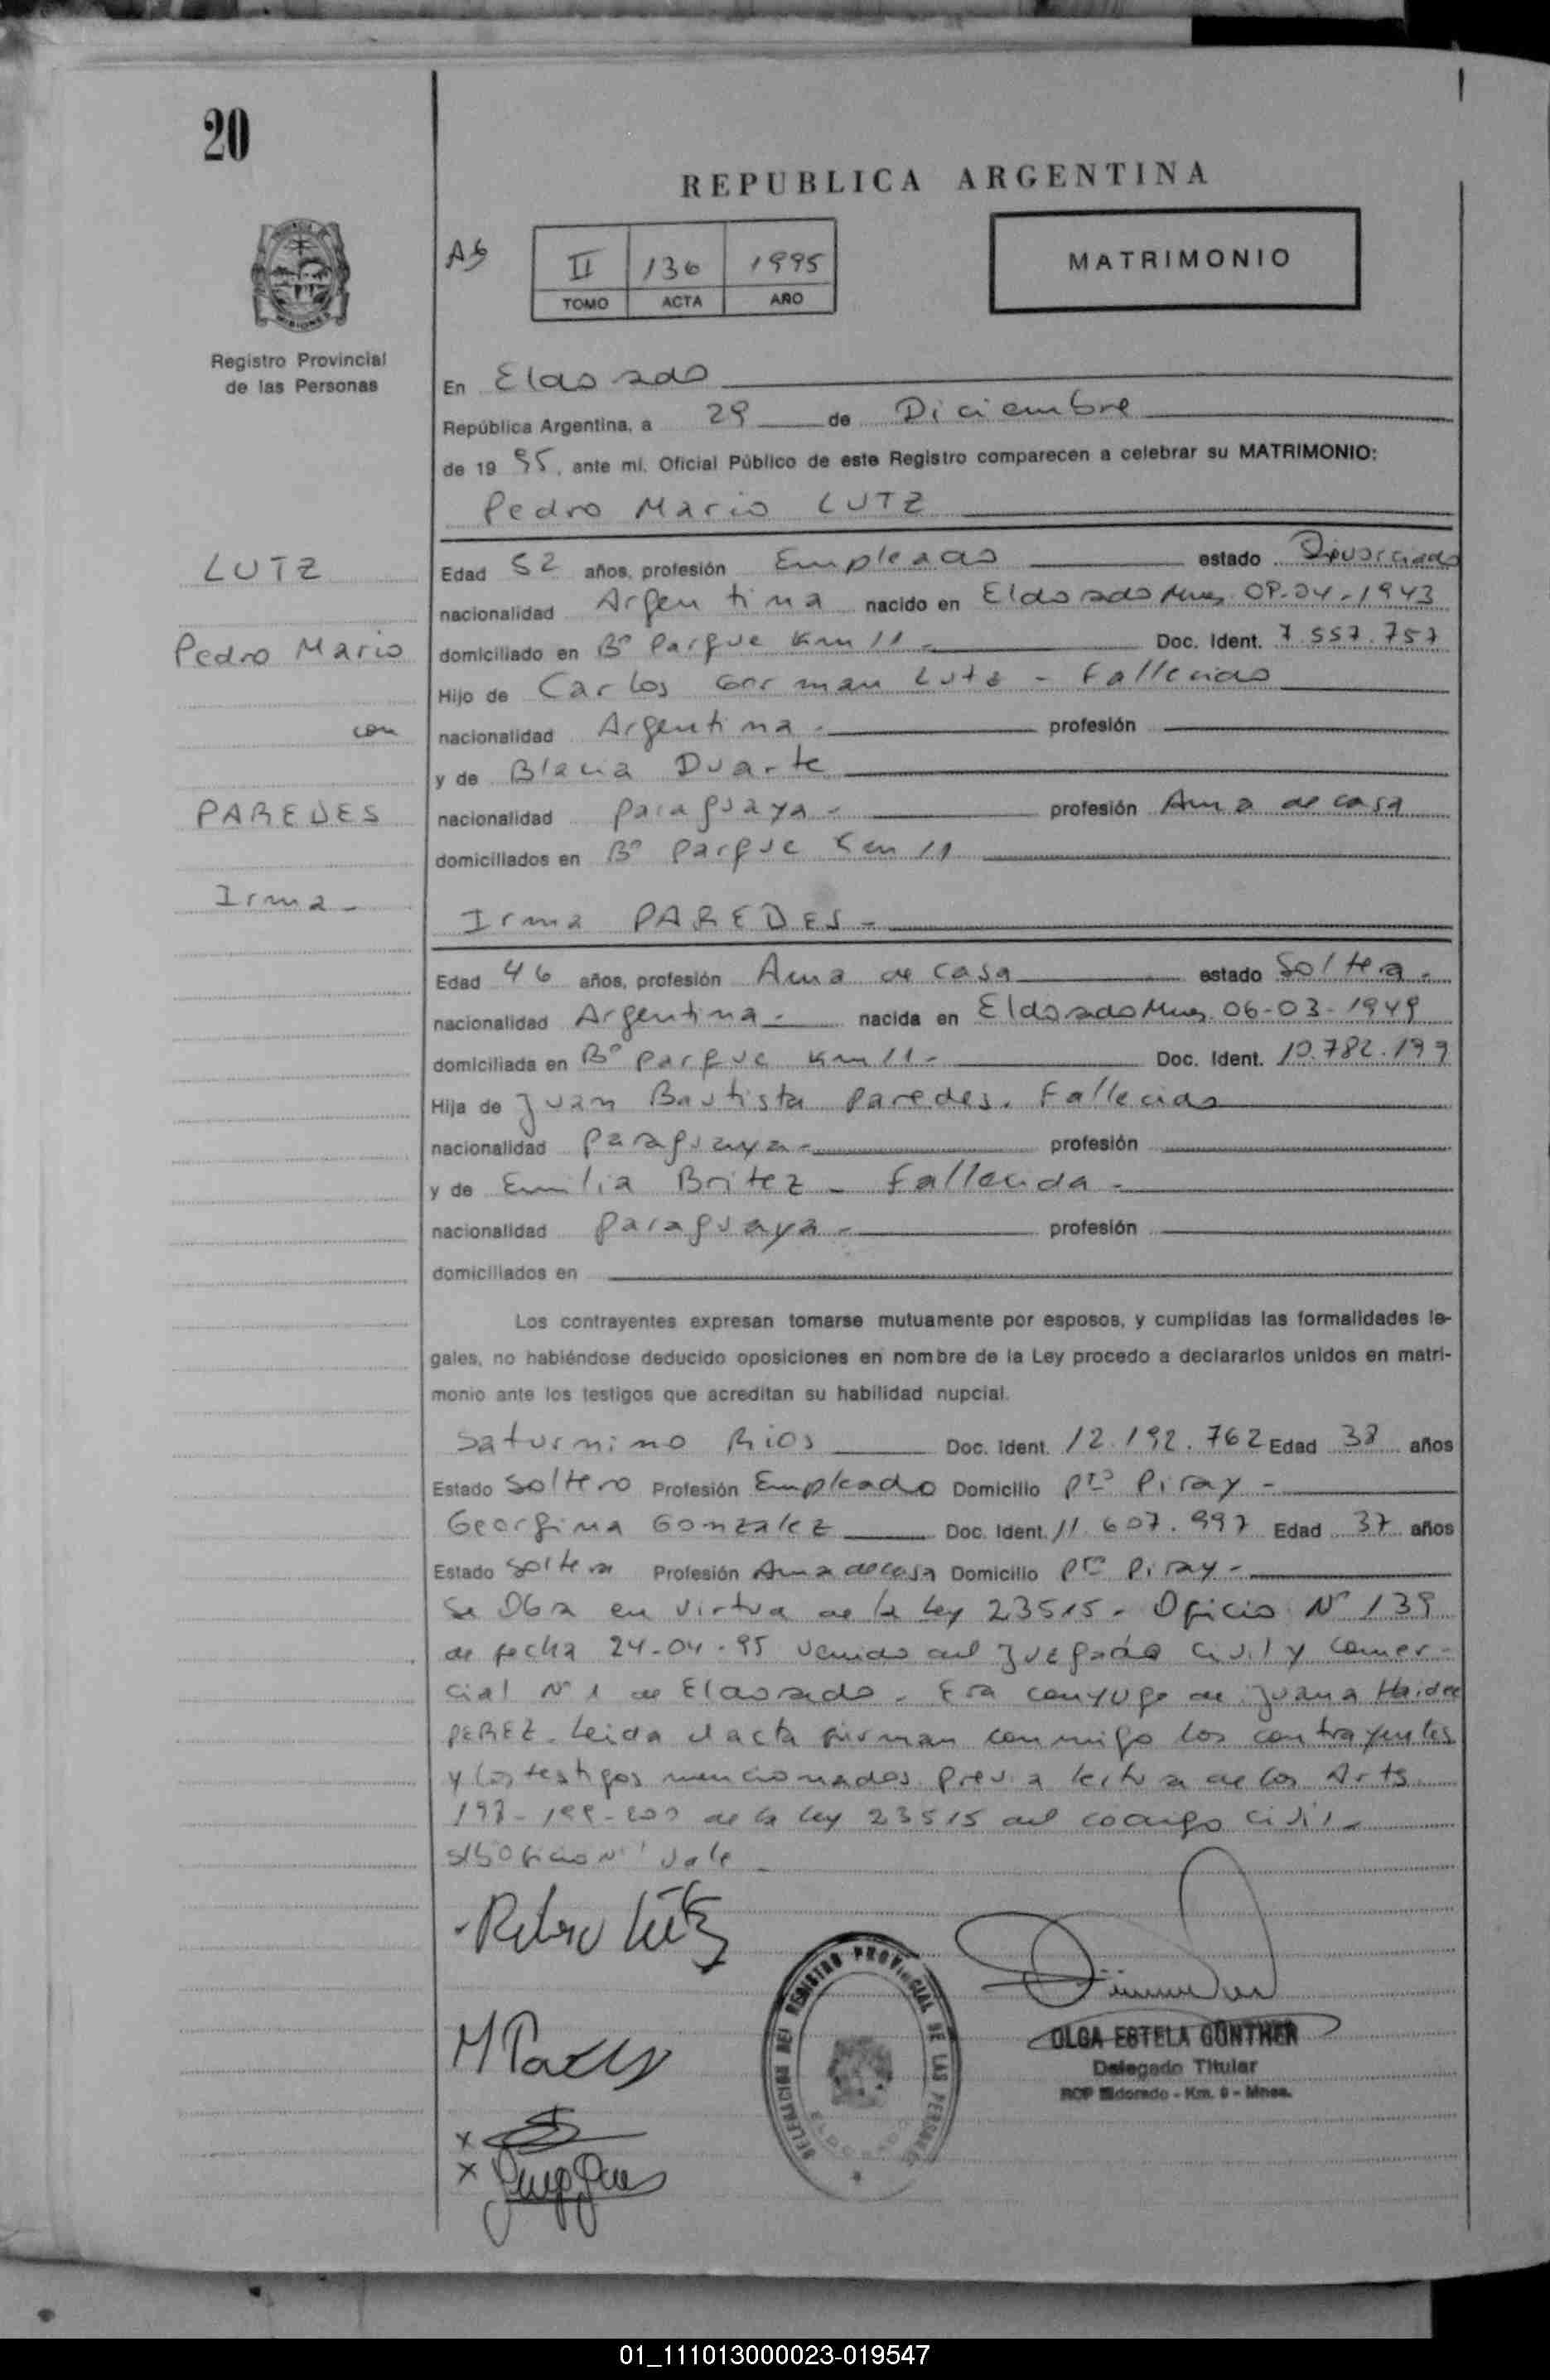 20
REPUBLICA ARGENTINA
MISIONES
Registro Provincial
de las Personas
II 136 1995
TOMO ACTA AÑO
MATRIMONIO
En Eldorado
República Argentina, a 29 de Diciembre
de 19 95, ante mí, Oficial Público de este Registro comparecen a celebrar su MATRIMONIO:
Pedro Mario LUTZ
LUTZ
Pedro Mario
con
PAREDES
Irma -
Edad 52 años, profesión Empleado estado Divorciado
nacionalidad Argentina nacido en Eldorado Mnes 09-04-1943
domiciliado en B° Parque Km 11 - Doc. Ident. 7.557.757
Hijo de Carlos German Lutz - Fallecido
nacionalidad Argentina - profesión
y de Duarte
nacionalidad paraguaya - profesión Ama de casa
domiciliados en B° Parque Km 11
Irma PAREDES -
Edad 46 años, profesión Ama de casa estado Soltera -
nacionalidad Argentina - nacida en Eldorado Mnes 06-03-1949
domiciliada en B° Parque Km 11 - Doc. Ident. 10.782.199
Hija de Juan Bautista Paredes. Fallecido
nacionalidad paraguaya - profesión
y de Emilia Britez - Fallecida -
nacionalidad paraguaya - profesión
domiciliados en
Los contrayentes expresan tomarse mutuamente por esposos, y cumplidas las formalidades le-
gales, no habiéndose deducido oposiciones en nombre de la Ley procedo a declararlos unidos en matri-
monio ante los testigos que acreditan su habilidad nupcial.
Saturnino Rios Doc. Ident. 12.192.762 Edad 38 años
Estado Soltero Profesión Empleado Domicilio Pto Piray -
Georgina Gonzalez Doc. Ident. 11.607.997 Edad 37 años
Estado soltera Profesión Ama de casa Domicilio Pto Piray -
Se Obra en virtud de la Ley 23515 - Oficio N° 139
de fecha 24-04-95 venido del Juzgado Civil y Comer-
cial N° 1 de Eldorado. Era conyuge de Juana Haidee
PEREZ. Leida el acta firman conmigo los contrayentes
y los testigos mencionados previa lectura de los Arts
198-199-200 de la Ley 23515 del codigo civil -
Oficio N° vale -
DELEGACION DEL REGISTRO PROVINCIAL DE LAS PERSONAS
ELDORADO
OLGA ESTELA GÜNTHER
Delegado Titular
RCP Eldorado - Km. 9 - Mnes.
01_111013000023-019547